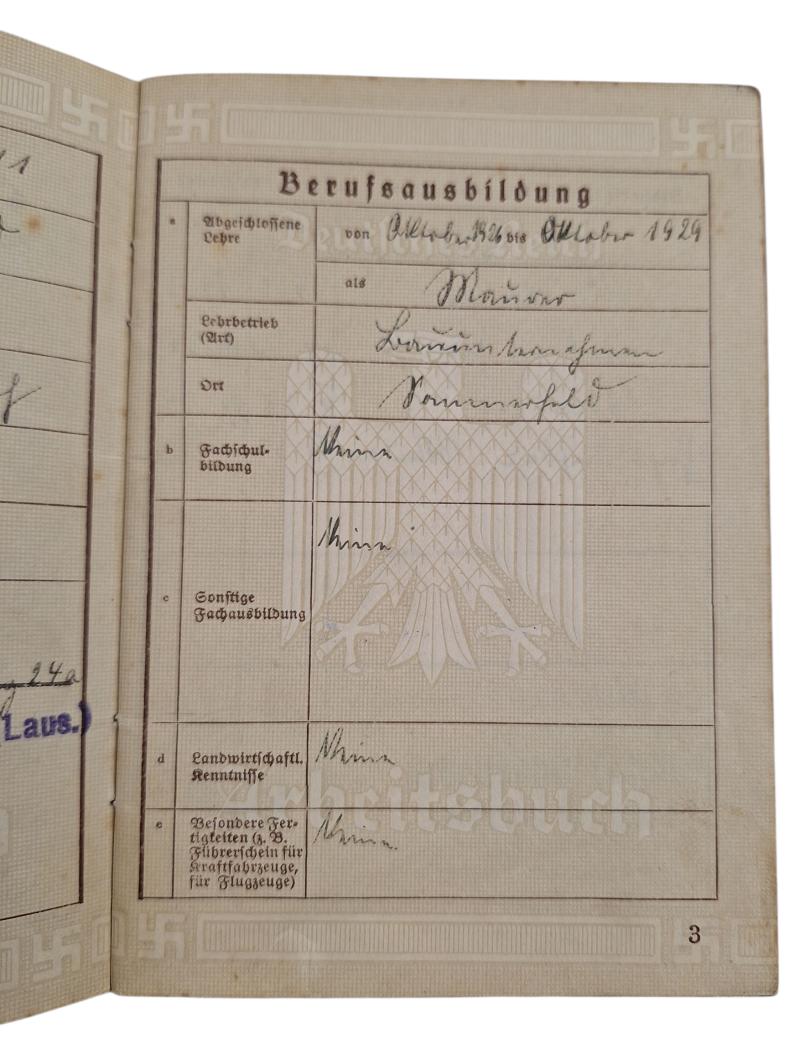 11
24a
Laus.)
Berufsausbildung
a Abgeschlossene Lehre
von Oktober 1926 bis Oktober 1929
als Maurer
Lehrbetrieb (Art)
Bauunternehmen
Ort
Sommerfeld
b Fachschul-
bildung
Keine
c Sonstige
Fachausbildung
Keine
d Landwirtschaftl.
Kenntnisse
Keine
e Besondere Fer-
tigkeiten (z. B.
Führerschein für
Kraftfahrzeuge,
für Flugzeuge)
Keine
Deutsches Reich
Arbeitsbuch
3